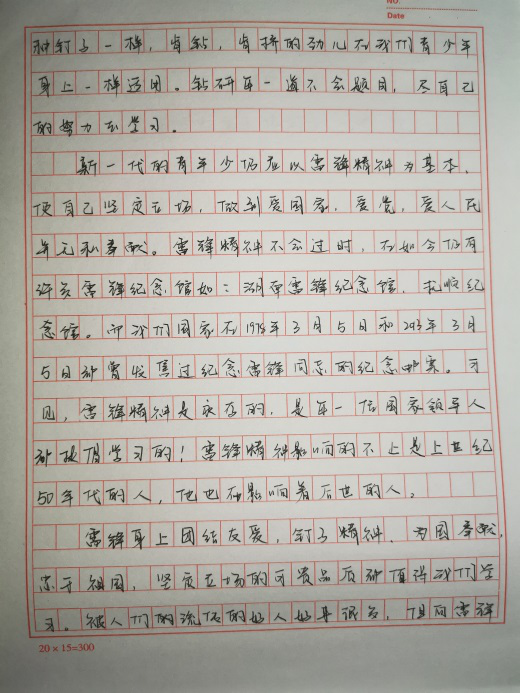 NO.
Date
种钉子一样，肯钻，肯挤的劲儿在我们青少年
身上一样适用。钻研每一道不会题目，尽自己
的努力去学习。
新一代的青年少仍应以雷锋精神为基本，
使自己坚定立场，做到爱国家，爱党，爱人民
并无私奉献。雷锋精神不会过时，在如今仍有
许多雷锋纪念馆如：湖南雷锋纪念馆，抚顺纪
念馆。而我们国家在1978年3月5日和2013年3月
5日都曾发售过纪念雷锋同志的纪念邮票。可
见，雷锋精神是永存的，是每一任国家领导人
都值得学习的！雷锋精神影响的不止是上世纪
50年代的人，他也在影响着后世的人。
雷锋身上团结友爱，钉子精神，为国奉献，
忠于祖国，坚定立场的可贵品质都值得我们学
习。被人们的流传的好人好事很多，但向雷锋
20×15=300